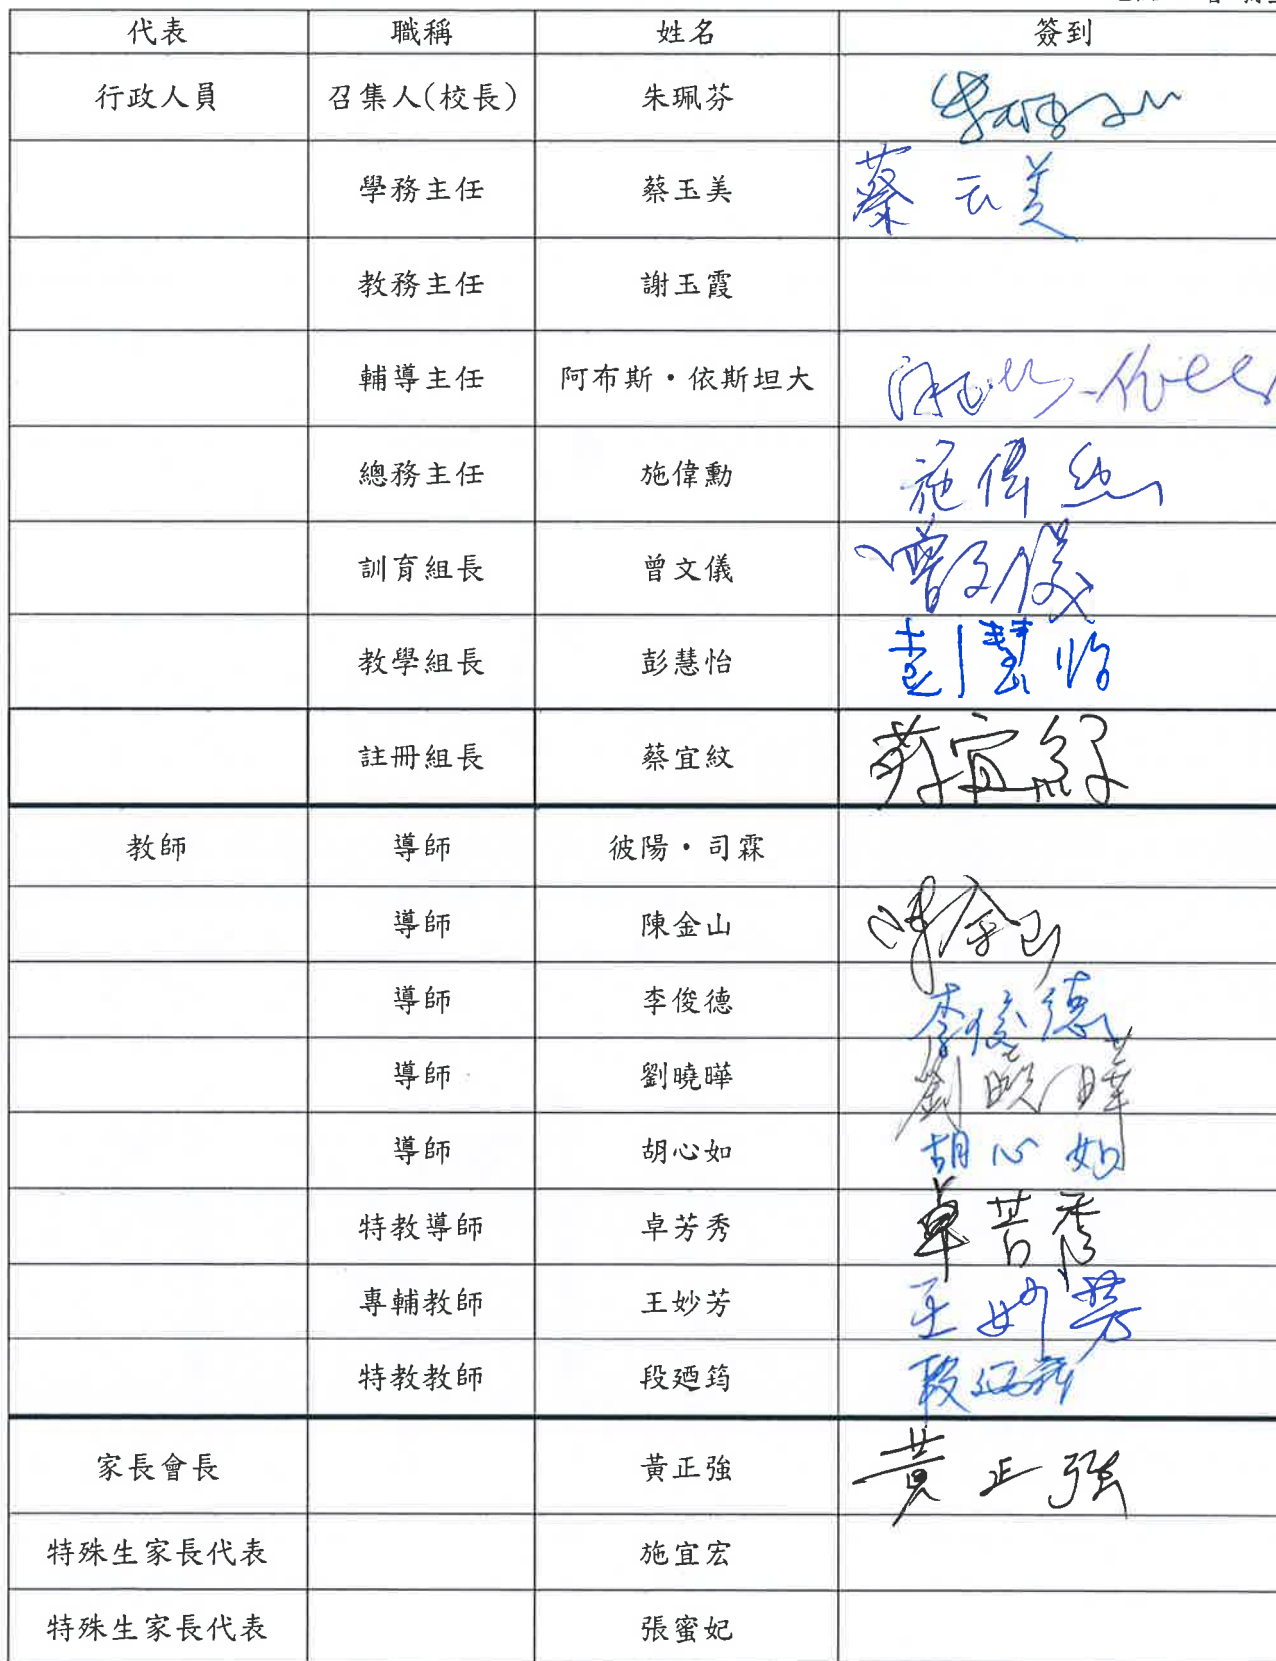 代表 職稱 姓名 簽到
行政人員 召集人(校長) 朱珮芬
學務主任 蔡玉美 蔡玉美
教務主任 謝玉霞
輔導主任 阿布斯・依斯坦大
總務主任 施偉勳 施偉勳
訓育組長 曾文儀 曾文儀
教學組長 彭慧怡 彭慧怡
註冊組長 蔡宜紋 蔡宜紋
教師 導師 彼陽・司霖
導師 陳金山 陳金山
導師 李俊德 李俊德
導師 劉曉曄 劉曉曄
導師 胡心如 胡心如
特教導師 卓芳秀 卓芳秀
專輔教師 王妙芳 王妙芳
特教教師 段廼筠 段廼筠
家長會長 黃正強 黃正強
特殊生家長代表 施宜宏
特殊生家長代表 張蜜妃